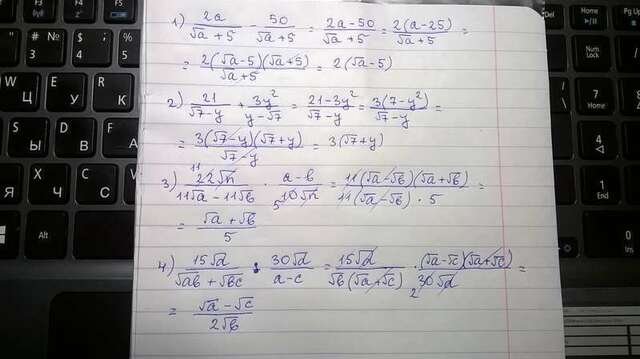 1) 2a/(√a + 5) - 50/(√a + 5) = (2a - 50)/(√a + 5) = 2(a - 25)/(√a + 5) =
= 2(√a - 5)(√a + 5)/(√a + 5) = 2(√a - 5)
2) 21/(√7 - y) + 3y²/(y - √7) = (21 - 3y²)/(√7 - y) = 3(7 - y²)/(√7 - y) =
= 3(√7 - y)(√7 + y)/(√7 - y) = 3(√7 + y)
3) 22√n/(11√a - 11√b) · (a - b)/(10√n) = 11(√a - √b)(√a + √b)/(11(√a - √b) · 5) =
= (√a + √b)/5
4) 15√d/(√ab + √bc) : 30√d/(a - c) = 15√d/(√b(√a + √c)) · (√a - √c)(√a + √c)/(30√d) =
= (√a - √c)/(2√b)